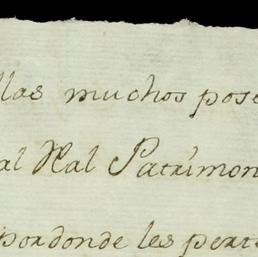 llas muchos pose
al Ral Patrimon
por donde les perte